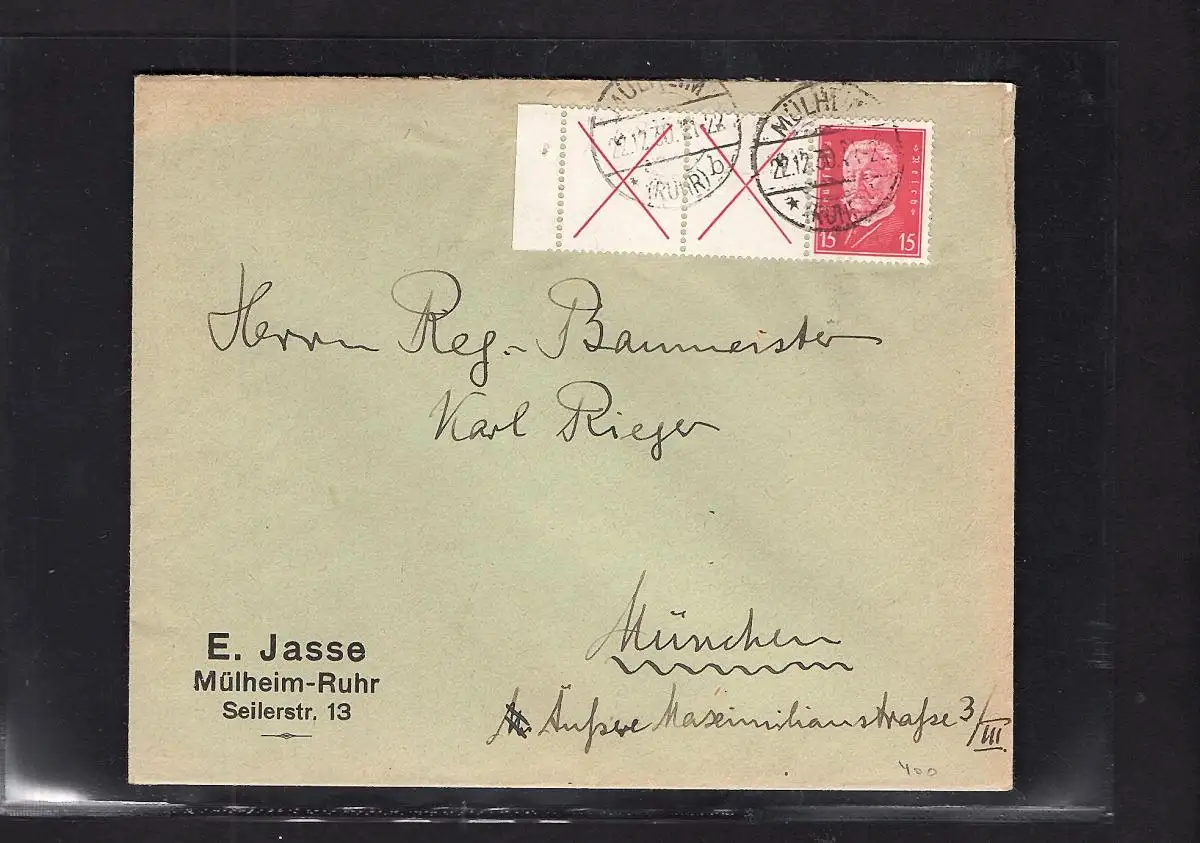 MÜLHEIM
22.12.30.21-22
* (RUHR) b
MÜLHEIM
22.12.30
* (RUHR
Reich
15 15
Herrn Reg.-Baumeister
Karl Rieger
München
Äußere Maximilianstraße 3/III.
E. Jasse
Mülheim-Ruhr
Seilerstr. 13
400